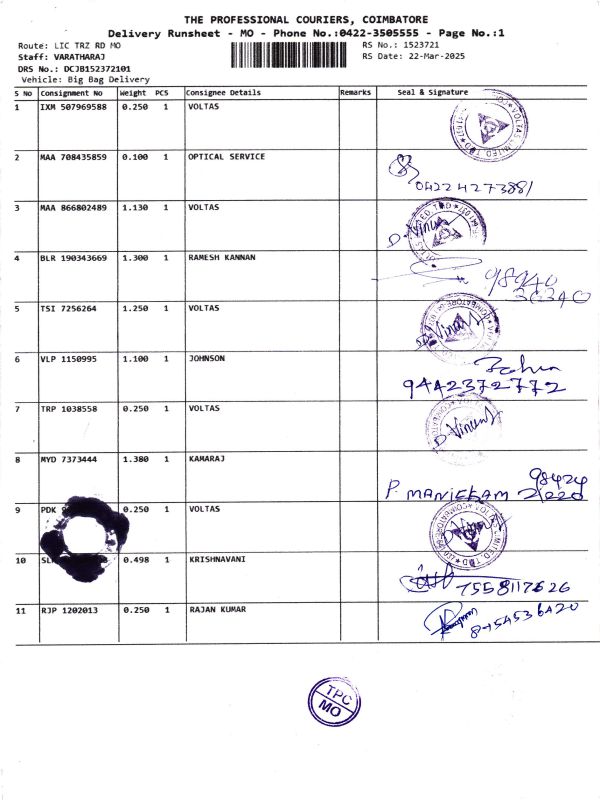 THE PROFESSIONAL COURIERS, COIMBATORE
Delivery Runsheet - MO - Phone No.:0422-3505555 - Page No.:1
Route: LIC TRZ RD MO RS No.: 1523721
Staff: VARATHARAJ RS Date: 22-Mar-2025
DRS No.: DCJB152372101
Vehicle: Big Bag Delivery
S No Consignment No Weight PCS Consignee Details Remarks Seal & Signature
1 IXM 507969588 0.250 1 VOLTAS
VOLTAS LIMITED
2 MAA 708435859 0.100 1 OPTICAL SERVICE
0422 4273881
3 MAA 866802489 1.130 1 VOLTAS
D. Vincent
4 BLR 190343669 1.300 1 RAMESH KANNAN
98940
36340
5 TSI 7256264 1.250 1 VOLTAS
D. Vincent
6 VLP 1150995 1.100 1 JOHNSON
9442372772
7 TRP 1038558 0.250 1 VOLTAS
D. Vincent
8 MYD 7373444 1.380 1 KAMARAJ
98424
P. MANICKAM 21220
9 PDK 0.250 1 VOLTAS
10 0.498 1 KRISHNAVANI
7558117626
11 RJP 1202013 0.250 1 RAJAN KUMAR
8754536420
TPC
MO